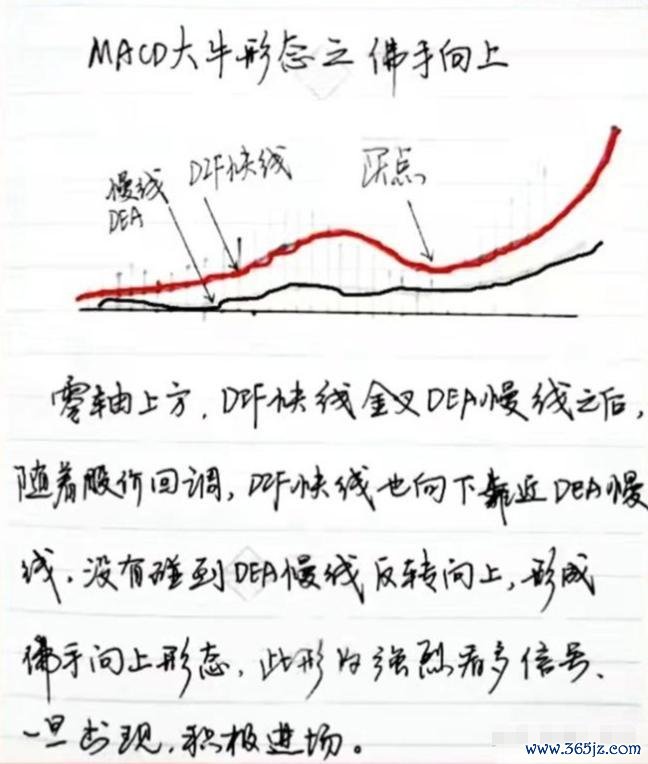 MACD大牛形态之佛手向上
慢线
DEA
DIF快线
买点
零轴上方，DIF快线金叉DEA慢线之后，
随着股价回调，DIF快线也向下靠近DEA慢
线，没有碰到DEA慢线反转向上，形成
佛手向上形态，此形为强烈看多信号、
一旦出现，积极进场。
www.365jz.com